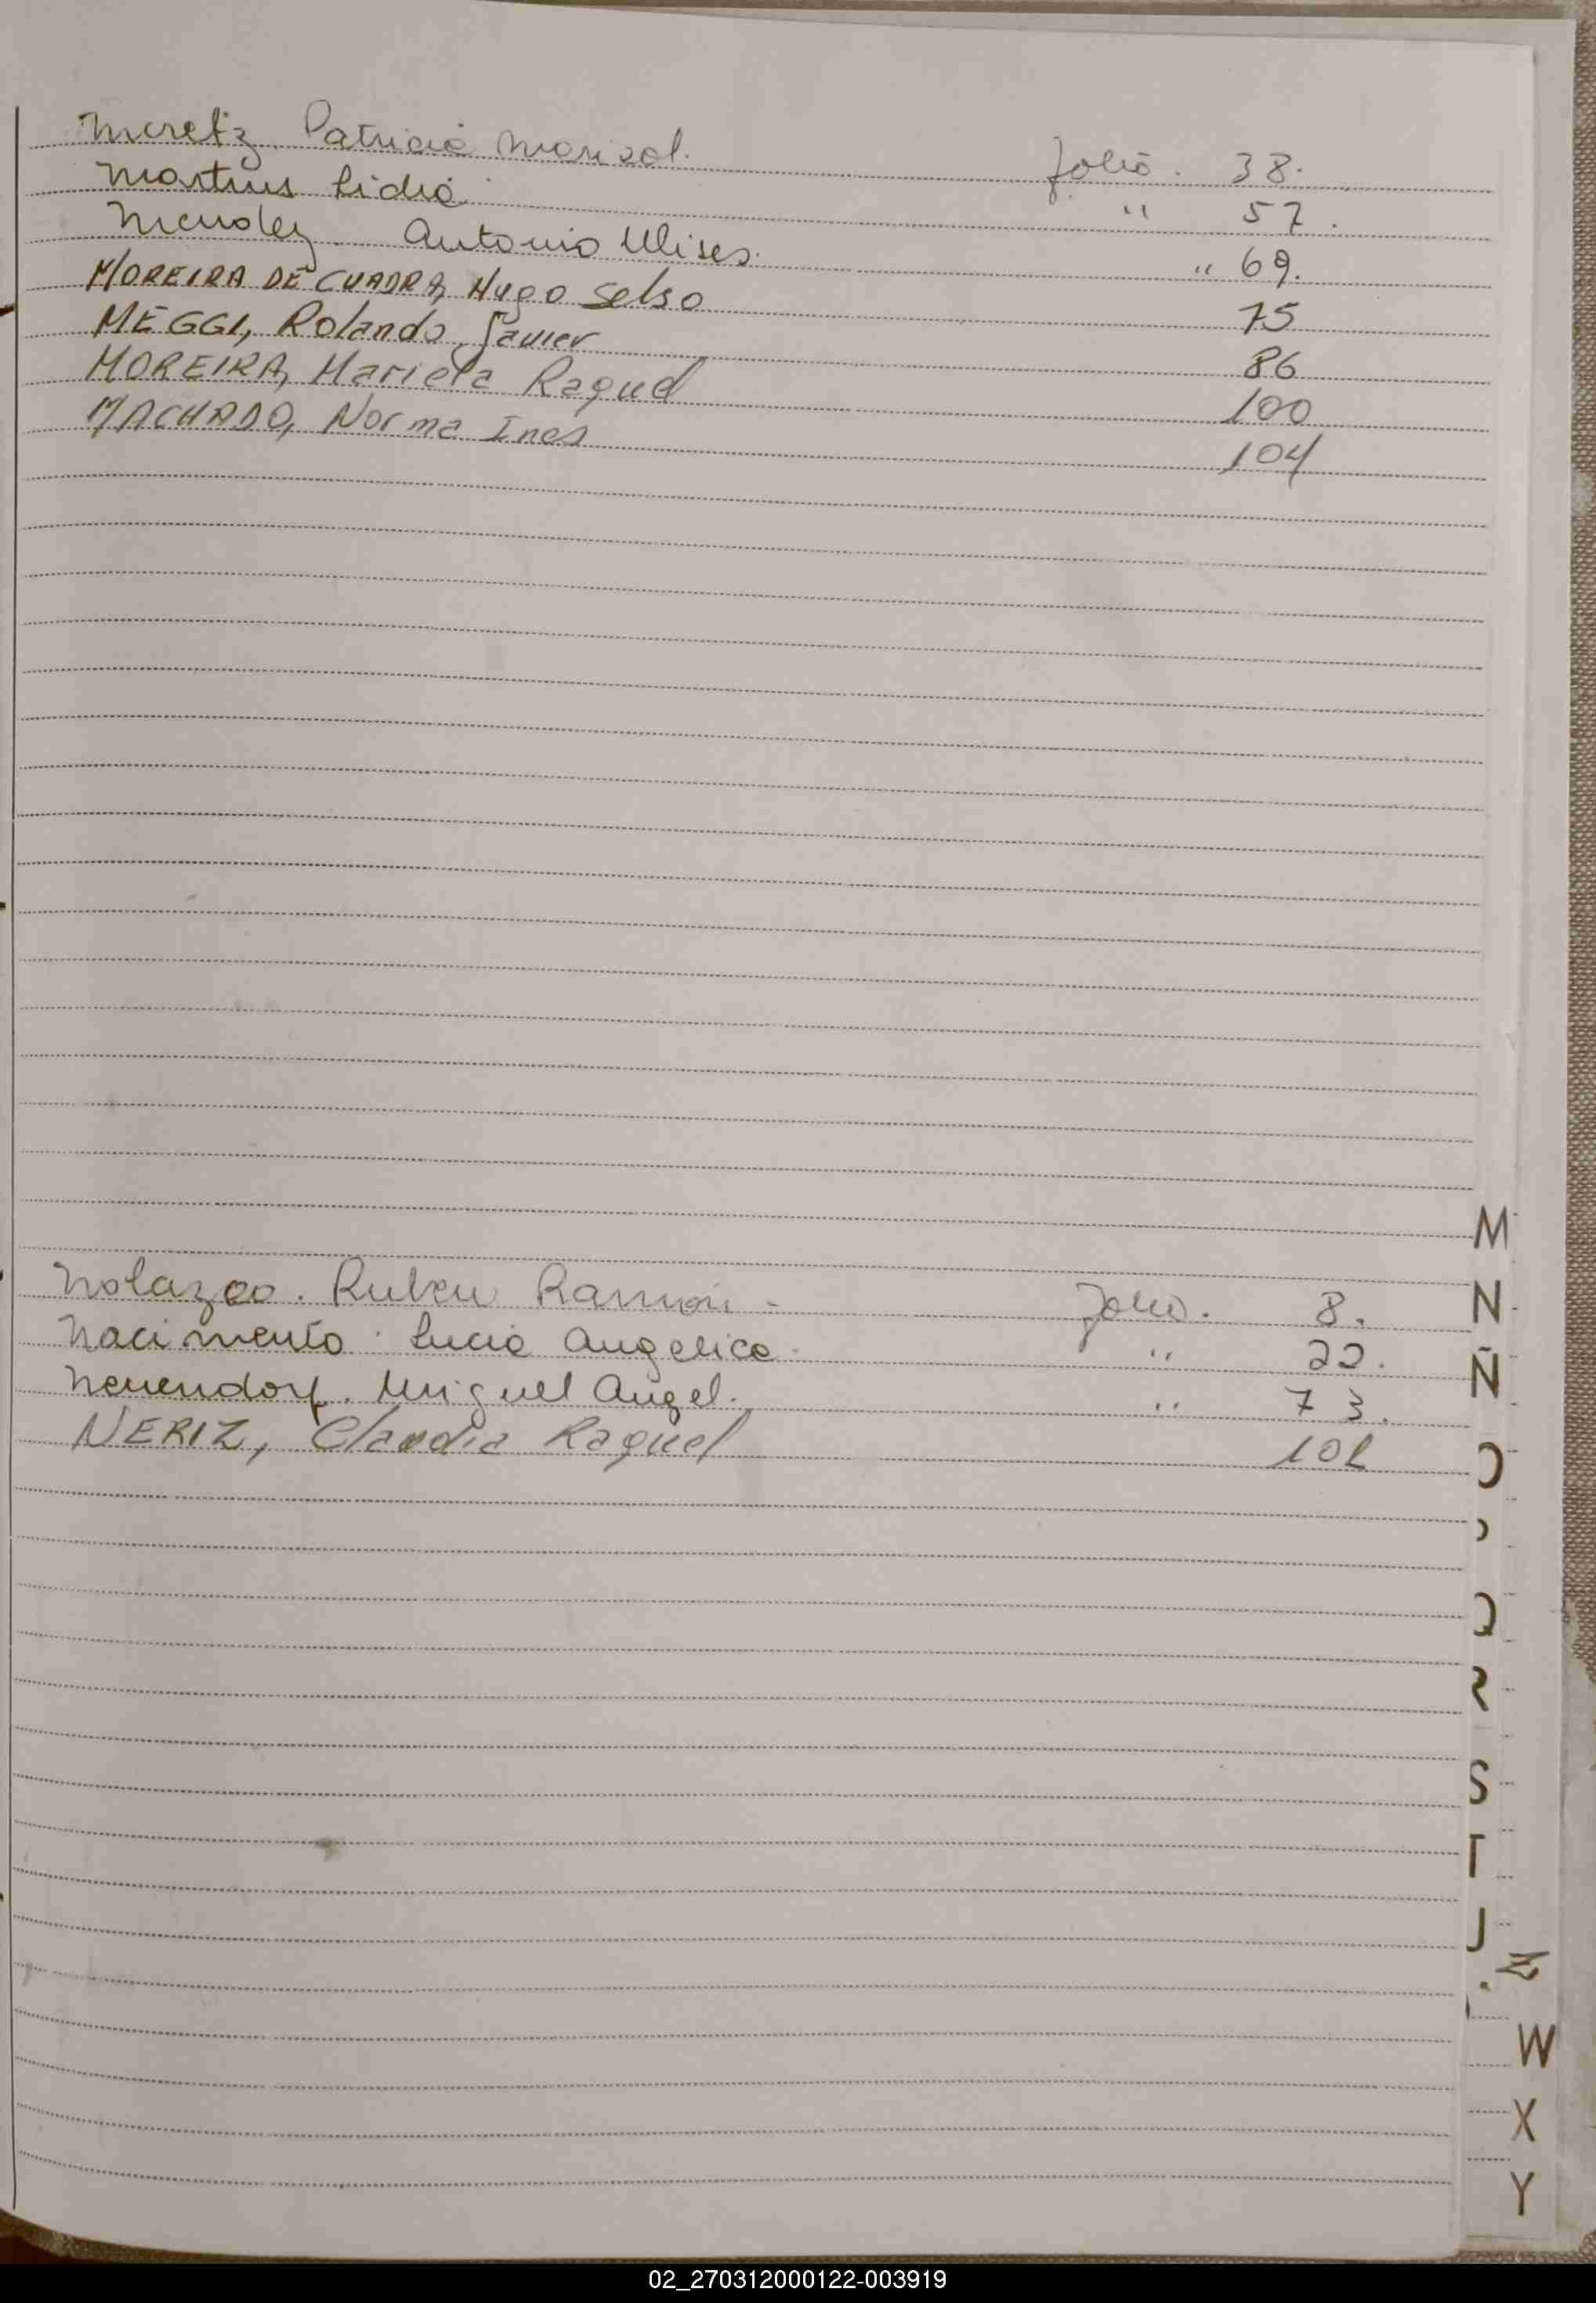 Meretiz. Patricia Marisol. folio. 38.
Martins Lidia. " 57.
Mendez. Antonio Ulises. " 69.
MOREIRA DE CUADRA, Hugo Selso 75
MEGGI, Rolando Javier 86
MOREIRA, Mariela Raquel 100
MACHADO, Norma Ines 104
M
Nolazco. Ruben Ramón. folio. 8.
N
Nacimento. Lucia Angelica. " 22.
Ñ
Neuendorf. Miguel Angel. " 73.
NERIZ, Claudia Raquel 101
O
P
Q
R
S
T
U
Z
W
X
Y
02_270312000122-003919